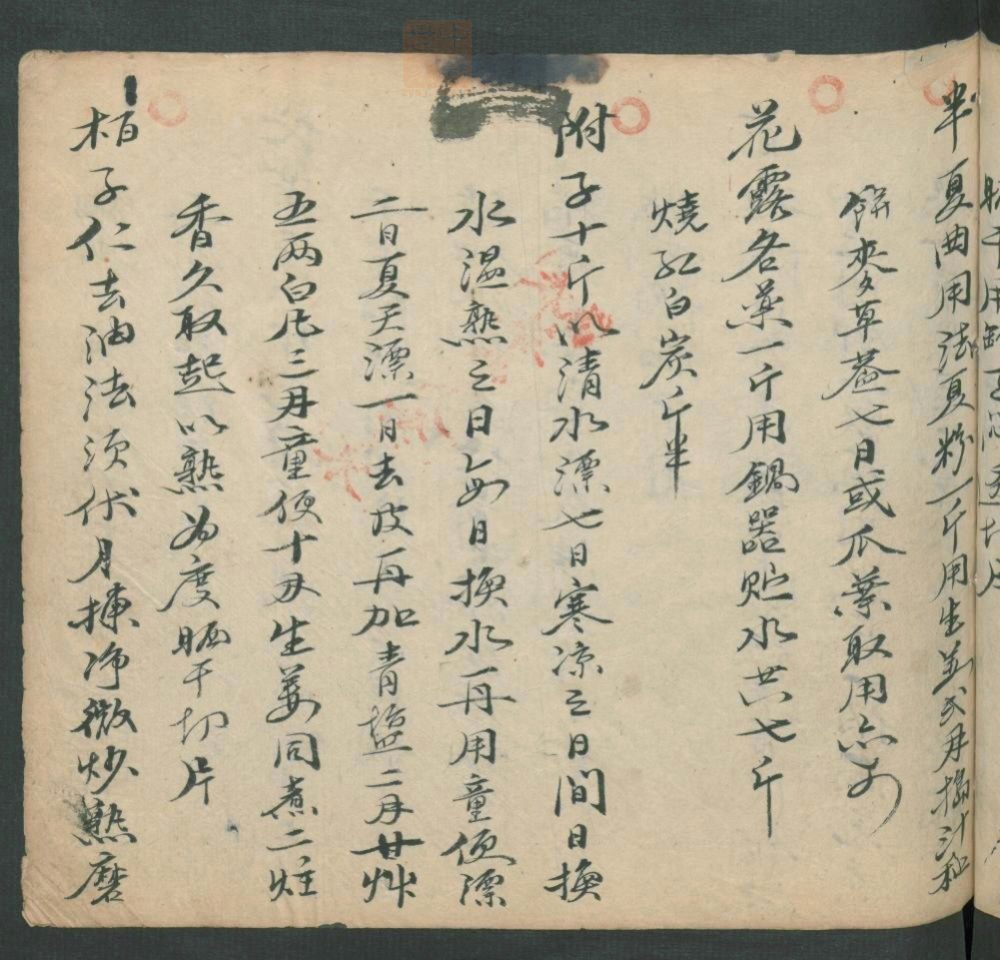 半夏曲用法夏粉一斤用生姜弍両搗汁和
餅麥草蓋七日或瓜葉取用亦可
花露各藥一斤用鍋器貯水廿六七斤
燒紅白炭斤半
附子十斤以清水漂七日寒凉之日間日換
水温熱之日每日換水再用童便漂
二日夏天漂一日去皮再加青盐二両甘艸
五两白凡三両童便十両生姜同煮二炷
香久取起以熟为度晒干切片
柏子仁去油法须伏月揀净微炒熟磨